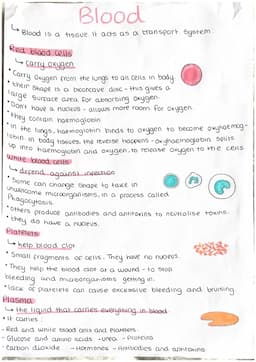 Blood
↳ Blood is a tissue it acts as a transport system
Red blood cells
↳ carry oxygen
• Carry oxygen from the lungs to all cells in body.
• their shape is a biconcave disc - this gives a
large surface area for absorbing oxygen.
• Don't have a nucleus - allows more room for oxygen
• They contain haemoglobin
• in the lungs, haemoglobin binds to oxygen to become oxyhaemog-
lobin. in body tissues, the reverse happens - oxyhaemoglobin splits
up into haemoglobin and oxygen, to release oxygen to the cells.
White blood cells
↳ defend against infection
• Some can change shape to take in
unwelcome microorganisms, in a process called
Phagocytosis
• others produce antibodies and antitoxins to neutralise toxins.
• they do have a nucleus.
Platelets
↳ help blood clot
• Small fragments of cells. They have no nucleus.
• They help the blood clot at a wound - to stop
bleeding and microorganisms getting in.
• lack of platelets can cause excessive bleeding and bruising
Plasma
↳ the liquid that carries everything in blood
• it carries:
- Red and white blood cells and Platelets
- Glucose and amino acids - urea - Proteins
- Carbon dioxide - Hormones - Antibodies and antitoxins